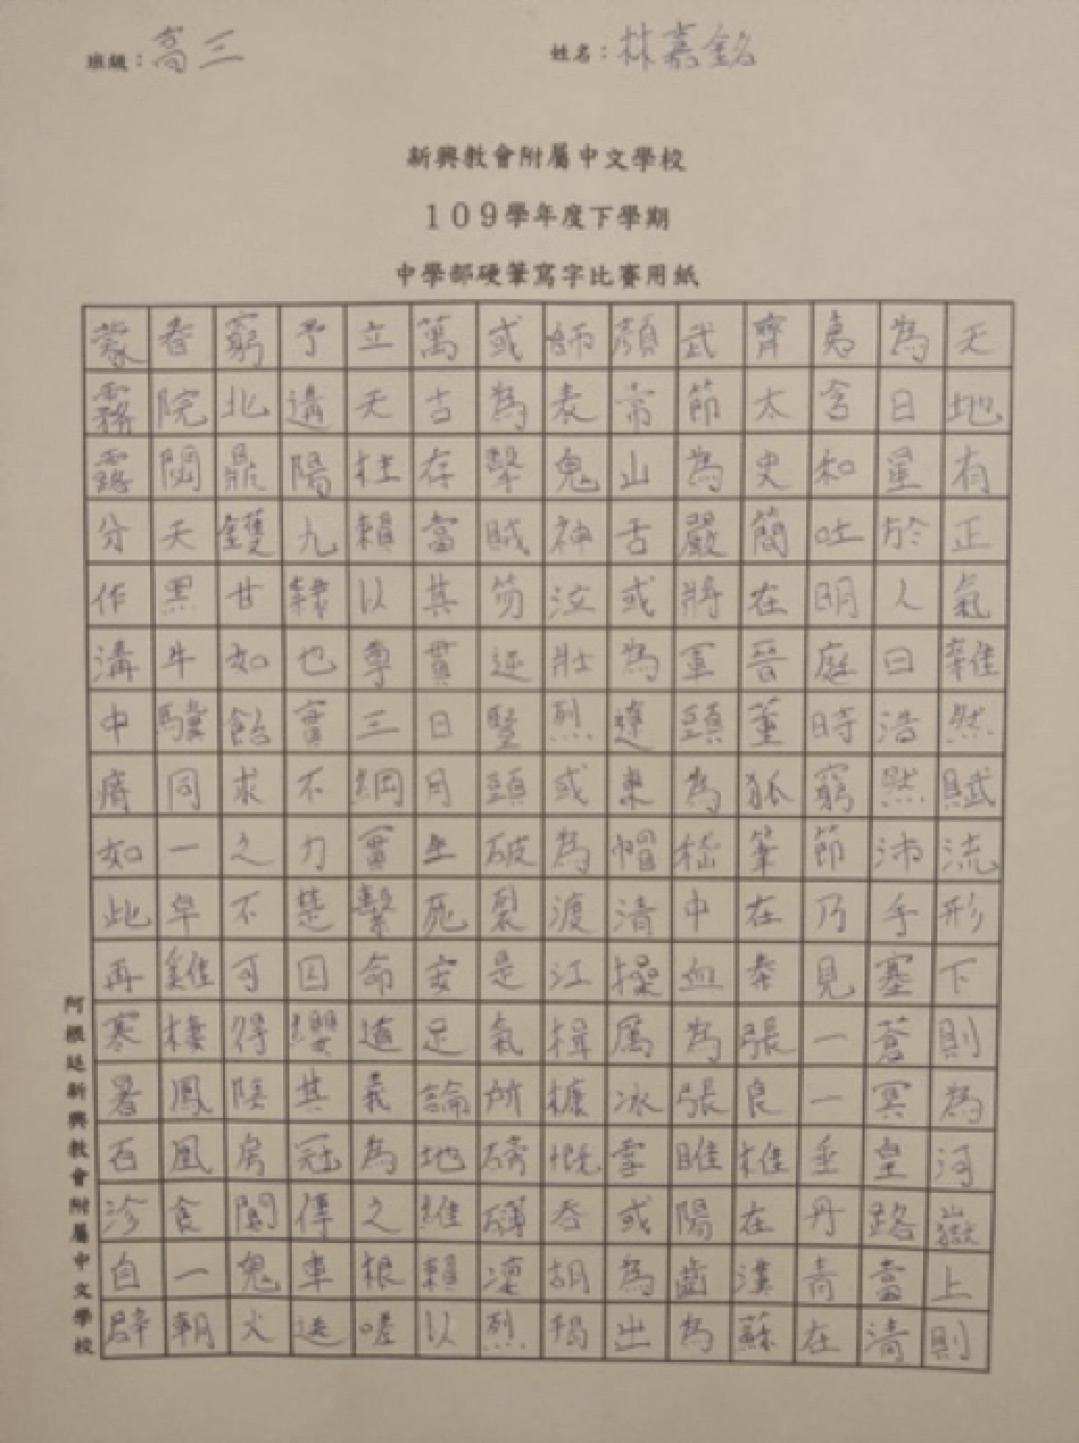 班級：高三
姓名：林嘉銘
新興教會附屬中文學校
109學年度下學期
中學部硬筆寫字比賽用紙
天地有正氣雜然賦流形下則為河嶽上則
為日星於人曰浩然沛乎塞蒼冥皇路當清
夷含和吐明庭時窮節乃見一一垂丹青在
齊太史簡在晉董狐筆在秦張良椎在漢蘇
武節為嚴將軍頭為嵇中血為張睢陽齒為
顏常山舌或為遼東帽清操厲冰雪或為出
師表鬼神泣壯烈或為渡江楫慷慨吞胡羯
或為擊賊笏逆豎頭破裂是氣所磅礡凜烈
萬古存當其貫日月生死安足論地維賴以
立天柱賴以尊三綱實繫命道義為之根嗟
予遘陽九隸也實不力楚囚纓其冠傳車送
窮北鼎鑊甘如飴求之不可得陰房闃鬼火
春院閟天黑牛驥同一皁雞棲鳳凰食一朝
蒙霧露分作溝中瘠如此再寒暑百沴自辟
阿根廷新興教會附屬中文學校